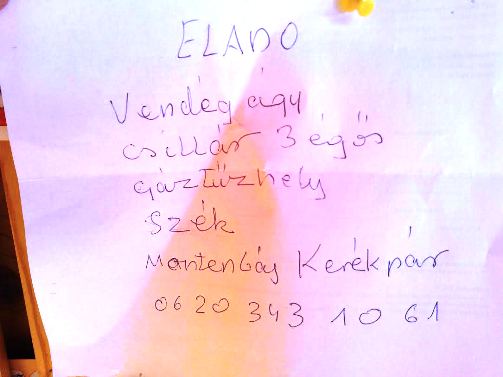 ELADO
Vendég ágy
csillár 3 égős
gáztűzhely
szék
Montenbáj Kerékpár
06 20 343 10 61